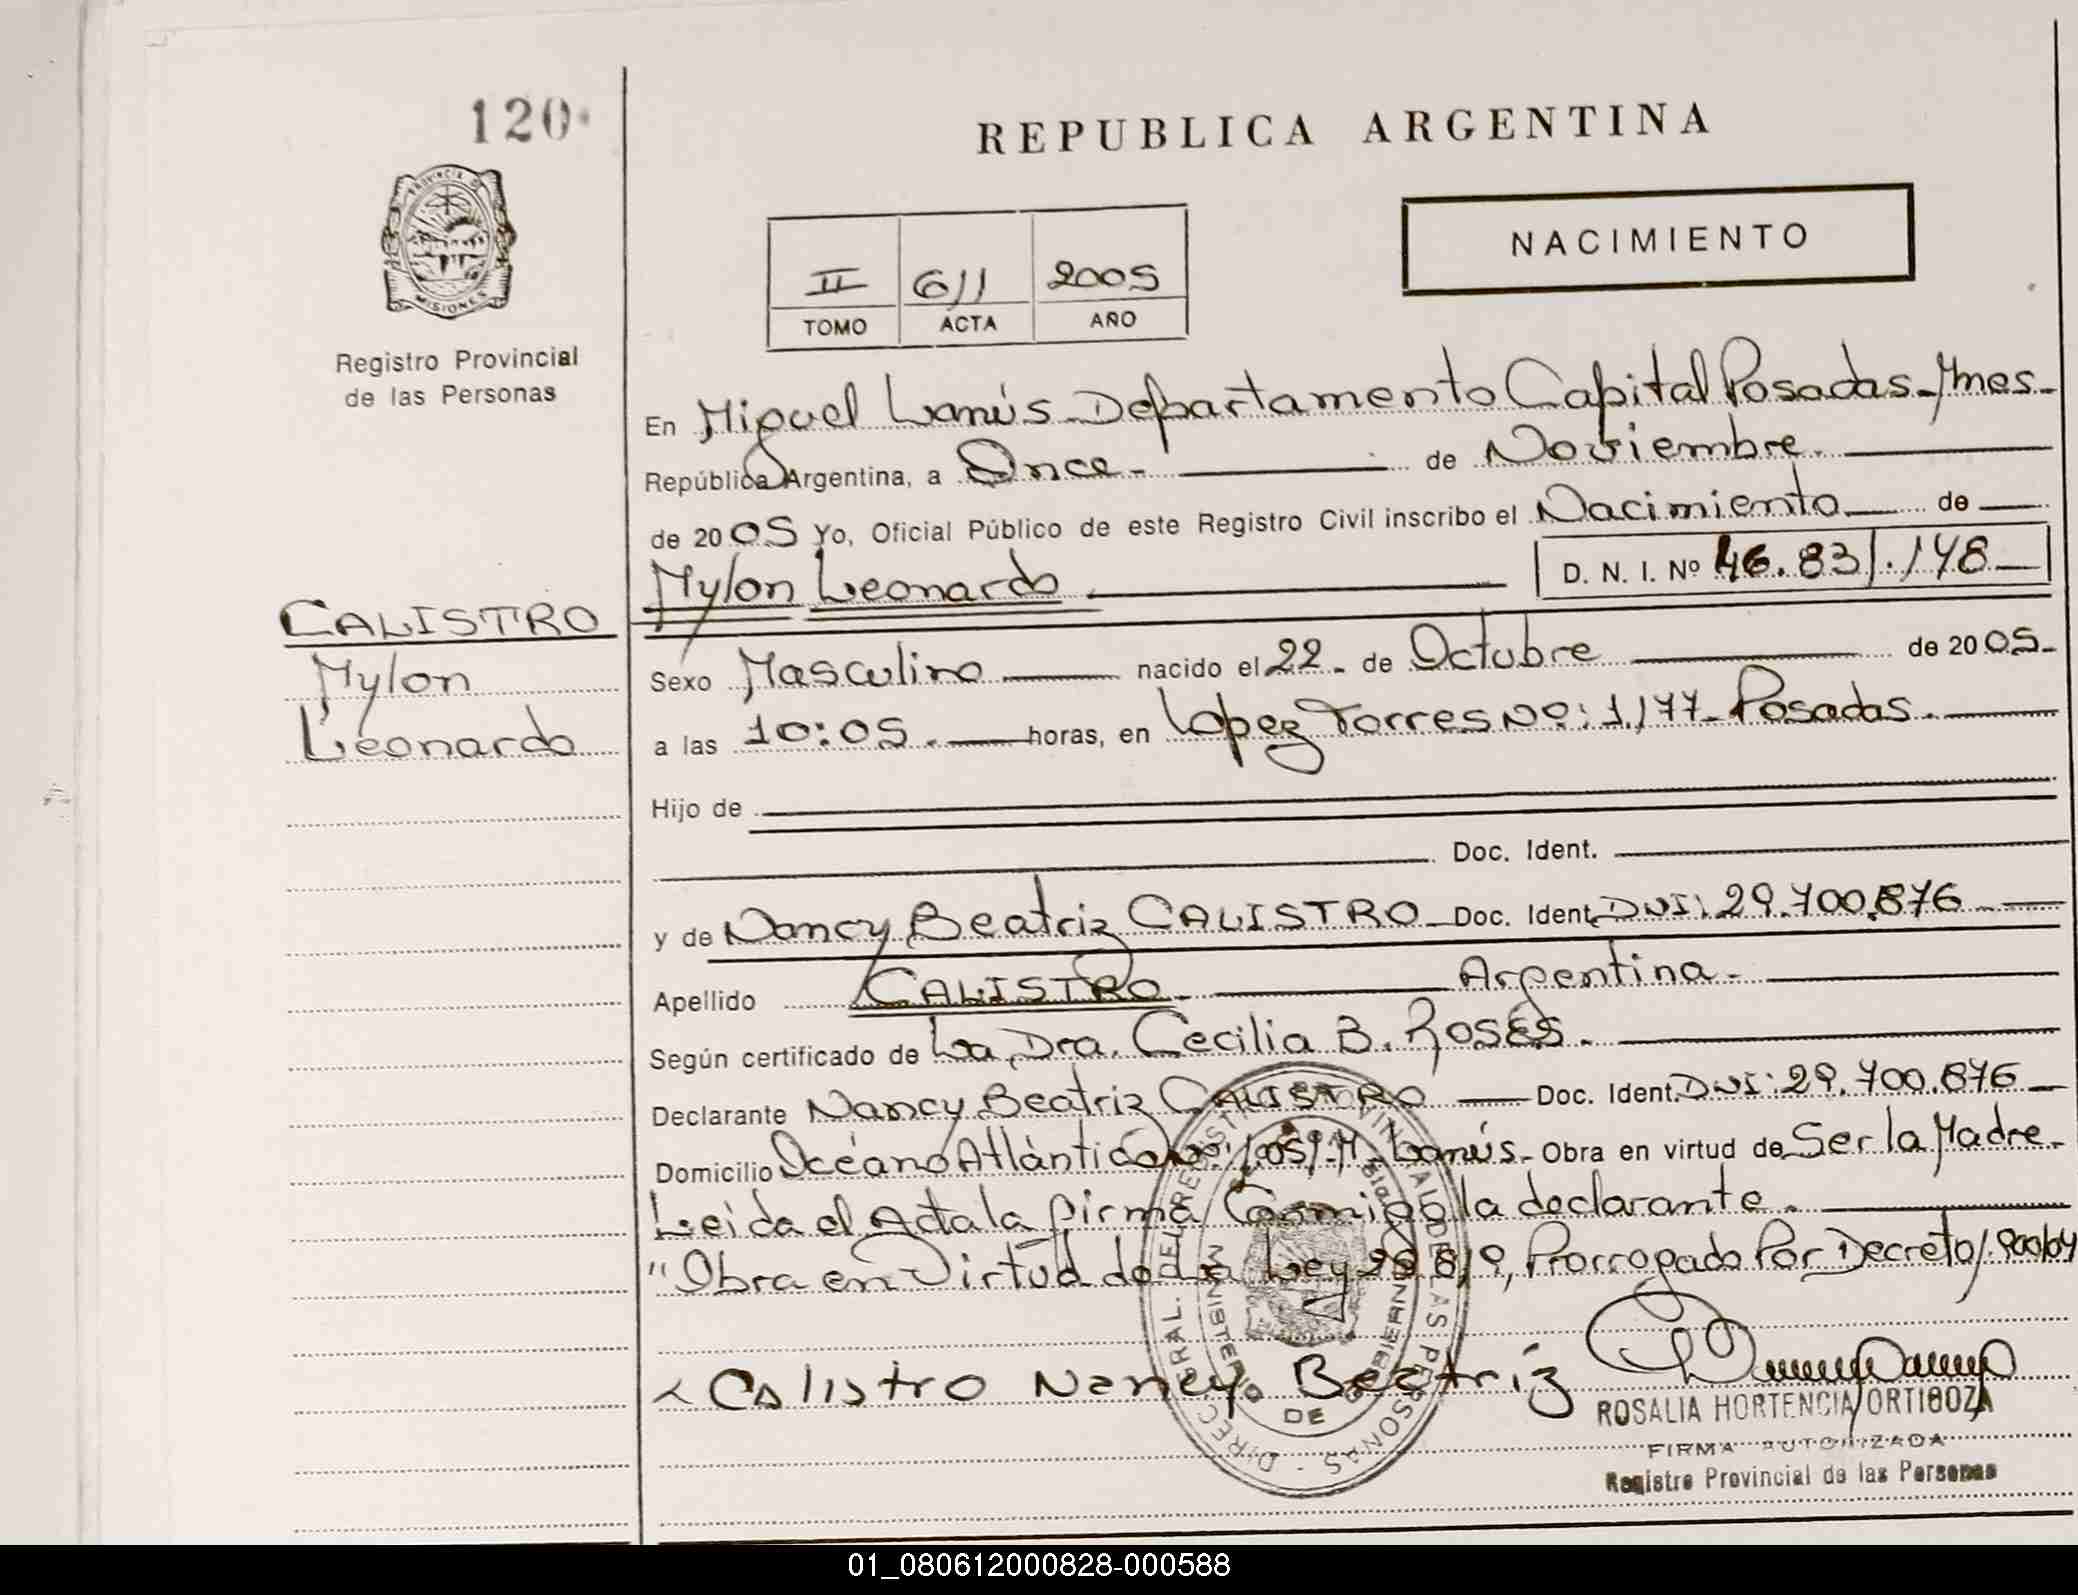 120
REPUBLICA ARGENTINA
PROVINCIA DE
MISIONES
NACIMIENTO
II 611 2005
TOMO ACTA AÑO
Registro Provincial
de las Personas
En Miguel Lanús Departamento Capital Posadas - Mnes -
República Argentina, a Once - de Noviembre.
de 2005 Yo, Oficial Público de este Registro Civil inscribo el Nacimiento de
Mylon Leonardo. D. N. I. Nº 46.831.148
CALISTRO
Mylon
Leonardo
Sexo Masculino nacido el 22 - de Octubre de 2005 -
a las 10:05. horas, en Lopez Torres Nº: 1177 - Posadas.
Hijo de
Doc. Ident.
y de Nancy Beatriz CALISTRO Doc. Ident. DNI: 29.700.876
Apellido CALISTRO - Argentina -
Según certificado de La Dra. Cecilia B. Roses.
Declarante Nancy Beatriz CALISTRO Doc. Ident. DNI: 29.700.876
Domicilio Océano Atlántico M. Lanús - Obra en virtud de Ser la Madre -
Leida el Acta la firma Conmigo la declarante.
"Obra en Virtud de la Ley Prorrogado Por Decreto
Calistro Nancy Beatriz
ROSALIA HORTENCIA ORTIGOZA
FIRMA AUTORIZADA
Registro Provincial de las Personas
MINISTERIO DE GOBIERNO
01_080612000828-000588